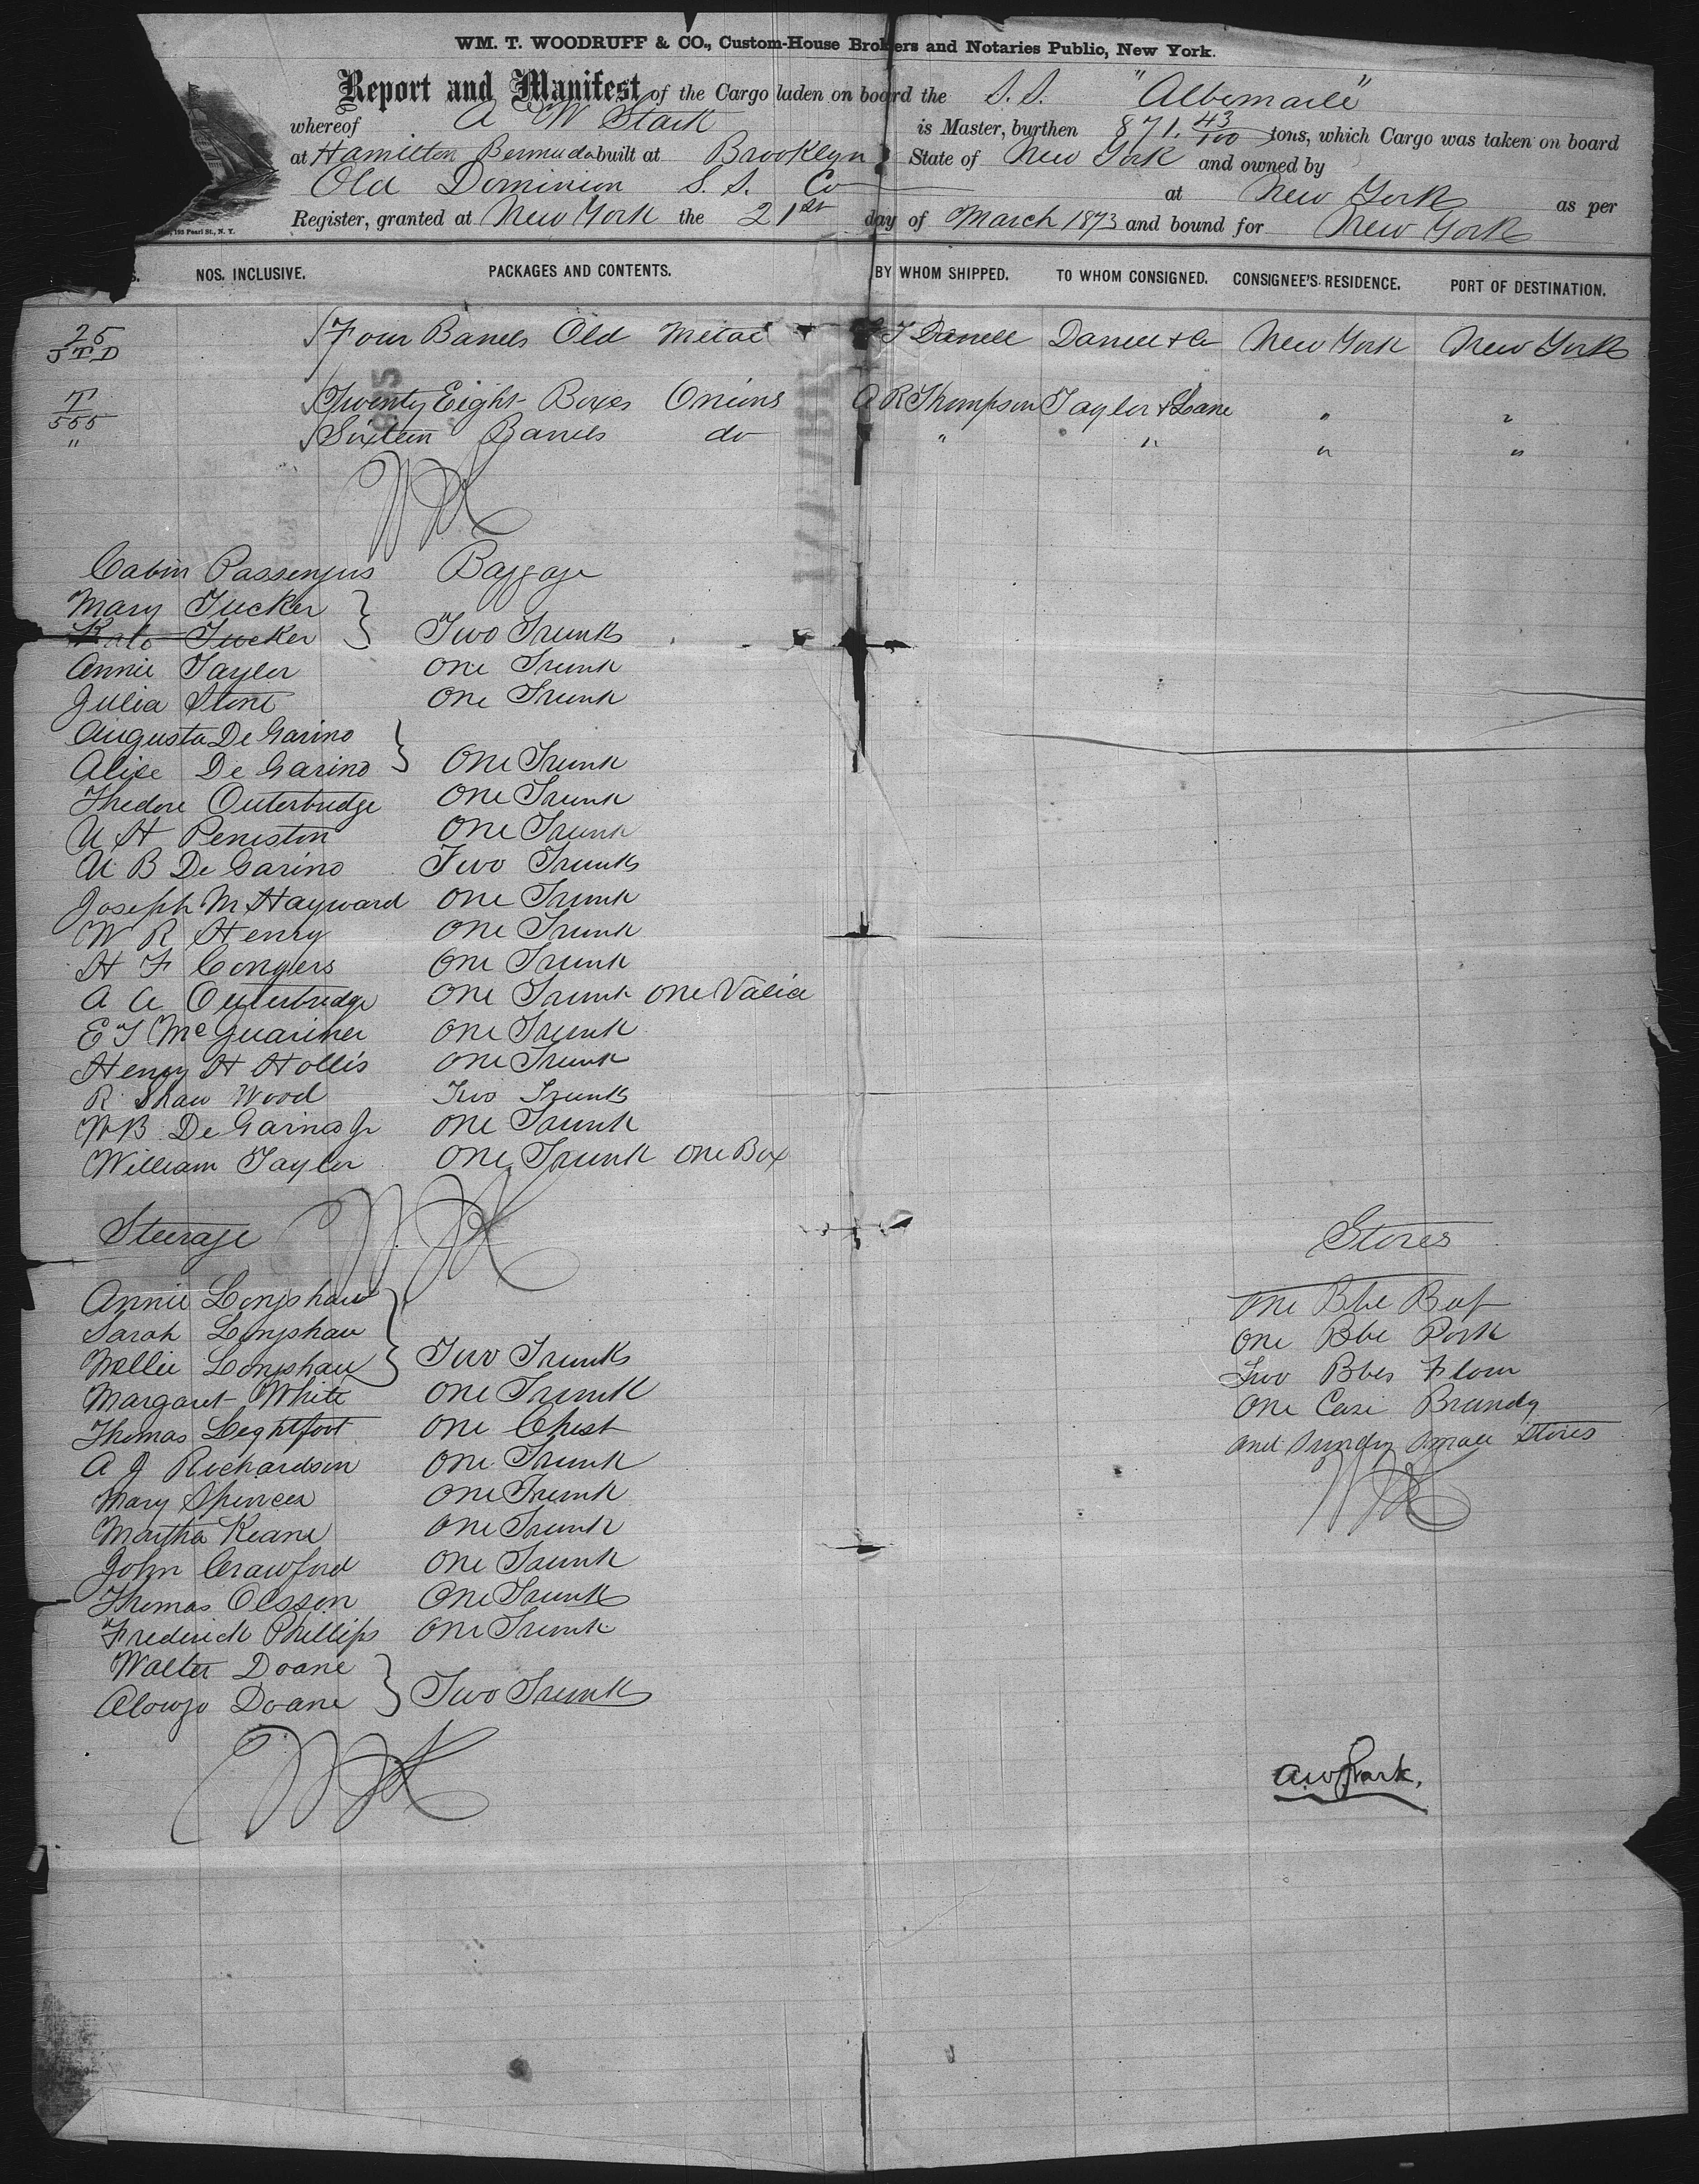 WM. T. WOODRUFF & CO., Custom-House Brokers and Notaries Public, New York.
Report and Manifest of the Cargo laden on board the S.S. "Albemarle"
whereof A W Stark is Master, burthen 871. 43/100 tons, which Cargo was taken on board
at Hamilton Bermuda built at Brooklyn State of New York and owned by
Old Dominion S. S. Co at New York as per
Register, granted at New York the 21st day of March 1873 and bound for New York
193 Pearl St., N. Y.
NOS. INCLUSIVE. PACKAGES AND CONTENTS. BY WHOM SHIPPED. TO WHOM CONSIGNED. CONSIGNEE'S RESIDENCE. PORT OF DESTINATION.
25
JTD Four Barrels Old Metal J T Darrell Darrell & Co New York New York
T
555 Twenty Eight Boxes Onions A R Thompson Taylor & Lane " "
" Sixteen Barrels do " " " "
Cabin Passengers Baggage
Mary Tucker
Kate Tucker } Two Trunks
Annie Tayler One Trunk
Julia Stone One Trunk
Augusta De Garino
Alise De Garino } One Trunk
Thedore Outerbridge One Trunk
U H Peniston One Trunk
U. B De Garino Two Trunks
Joseph M Hayward One Trunk
W R Henry One Trunk
H F Congers One Trunk
A A Outerbridge One Trunk One Valice
E T McGuariner One Trunk
Henry H Hollis One Trunk
R. Shaw Wood Two Trunks
W B De Garino Jr One Trunk
William Tayler One Trunk One Box
Steerage
Annie Longshaw
Sarah Longshaw
Mellie Longshaw } Two Trunks
Margaret White One Trunk
Thomas Leghtfoot One Chest
A J Richardson One Trunk
Mary Spencer One Trunk
Martha Keane One Trunk
John Crawford One Trunk
Thomas Olsson One Trunk
Frederick Phillips One Trunk
Walter Doane
Alonzo Doane } Two Trunks
Stores
One Bbl Beef
One Bbl Pork
Two Bbls Flour
One Case Brandy
and Sundry Small Stores
A.W. Stark.